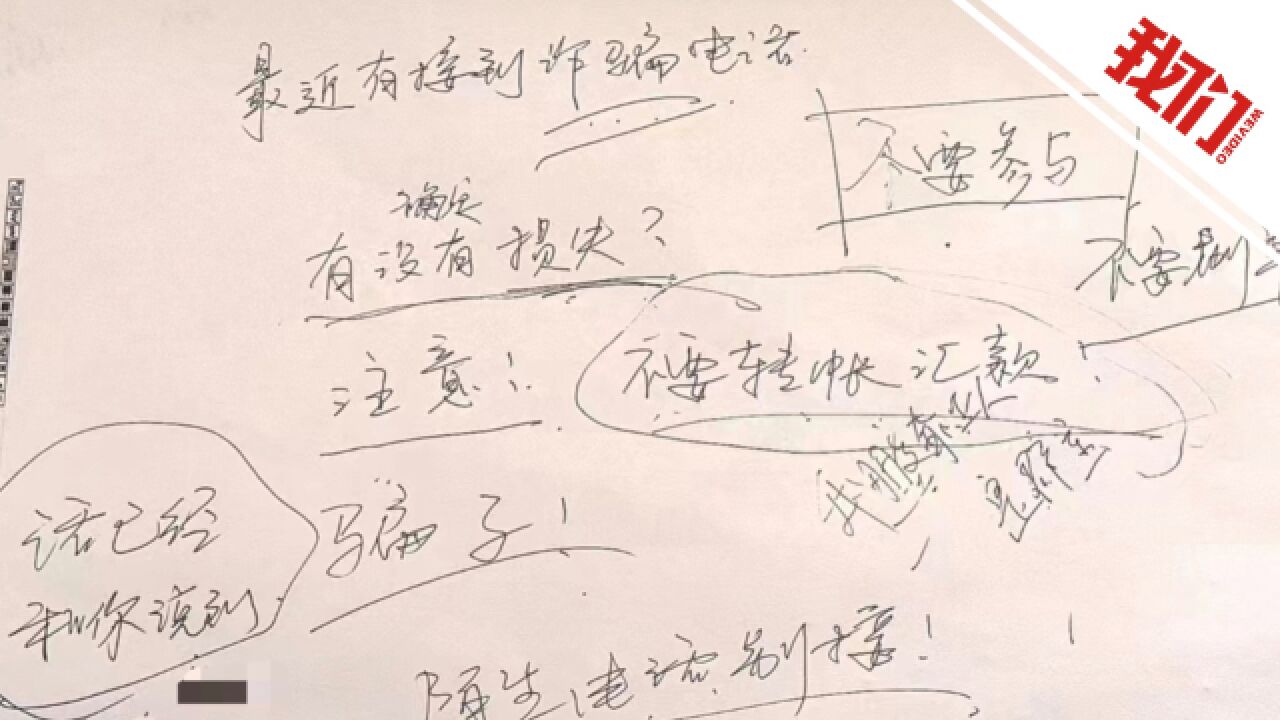 最近有接到诈骗电话
我们
WEVIDEO
不要参与
确定
有没有损失？
不要
注意！
不要转帐汇款
话已经
和你说到
骗子！
陌生电话别接！